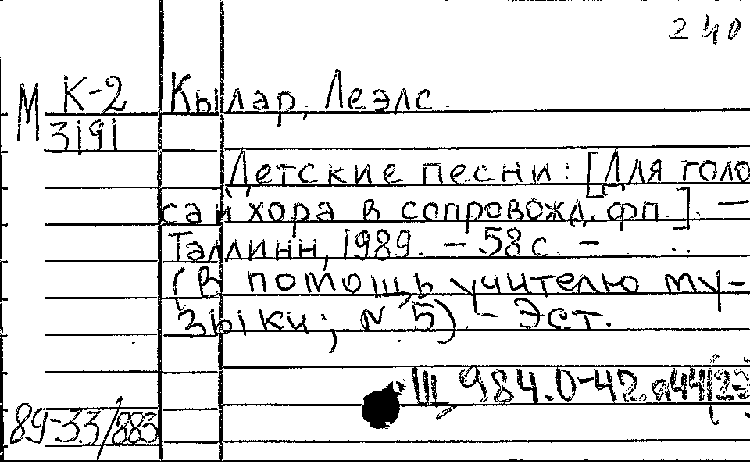 240
М К-2 Кылар, Леэлс.
3191
Детские песни: [Для голо
са и хора в сопровожд. фп.]. —
Таллинн, 1989. — 58 с. —
(В помощь учителю му-
зыки; N 5) - Эст.
Щ 984.0-42
89-33/883